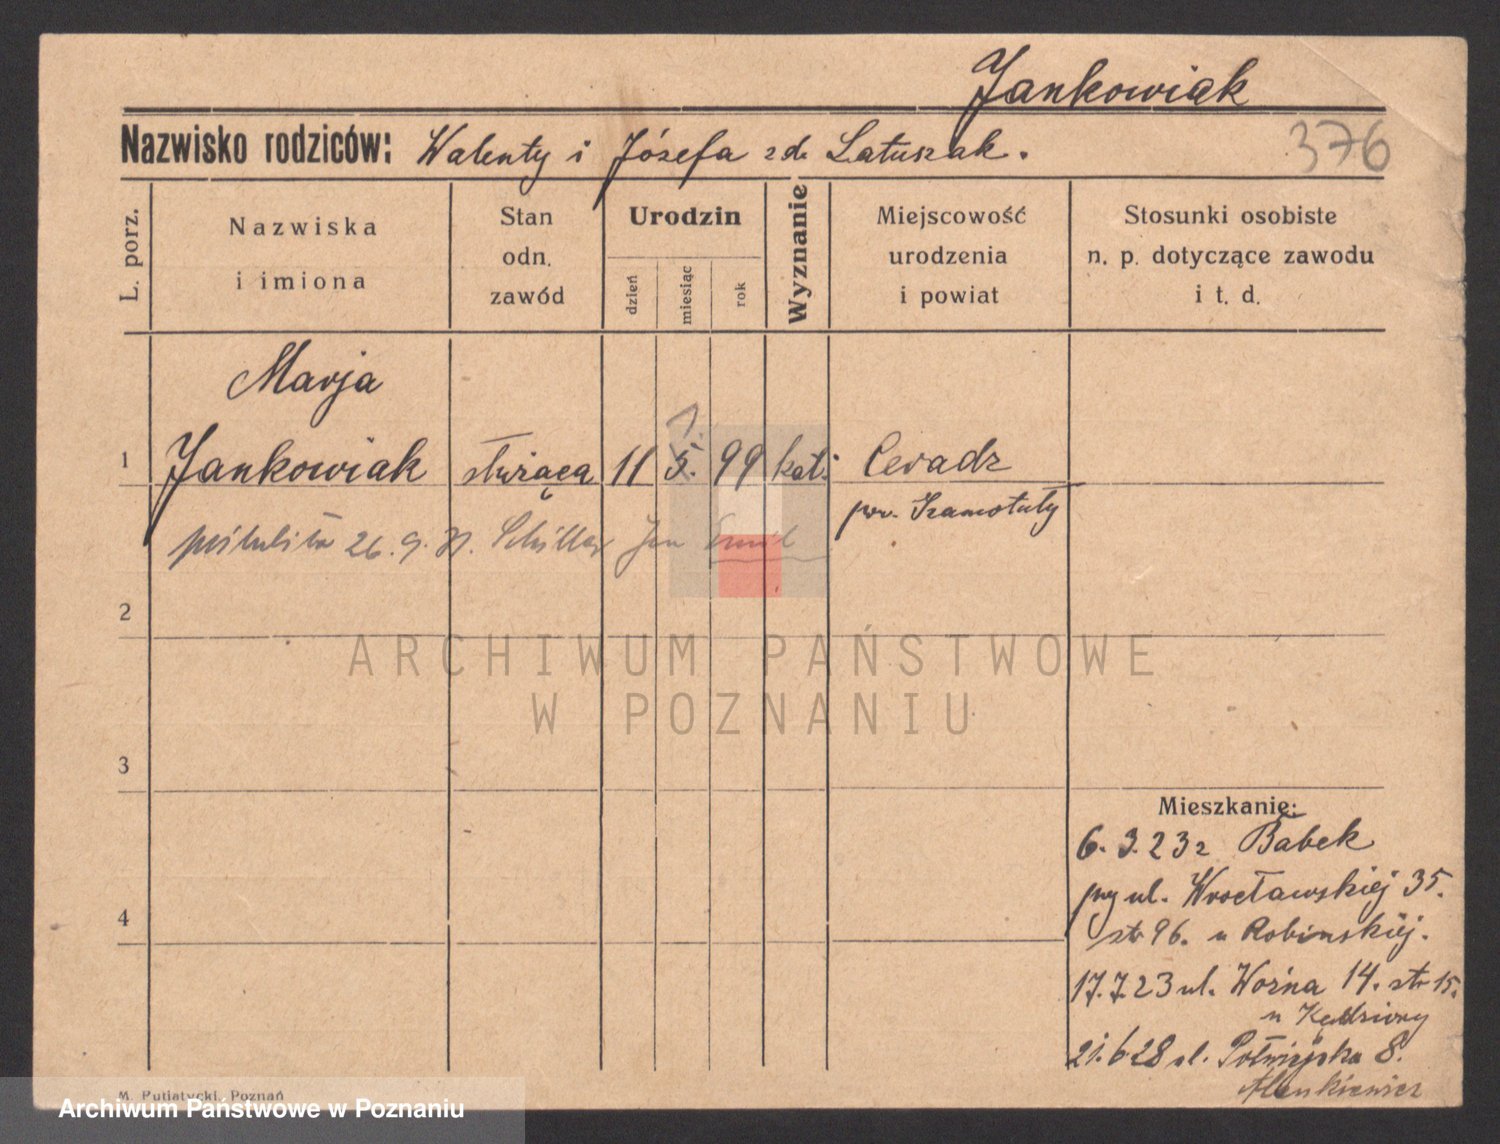 Jankowiak
Nazwisko rodziców: Walenty i Józefa z d. Latuszak.
376
L. porz.
Nazwiska
i imiona
Stan
odn.
zawód
Urodzin
dzień
miesiąc
rok
Wyznanie
Miejscowość
urodzenia
i powiat
Stosunki osobiste
n. p. dotyczące zawodu
i t. d.
Marja
1 Jankowiak służąca 11 5. 99 kat. Ceradz
pow. Szamotuły
26. 9. Jan
2
ARCHIWUM PAŃSTWOWE
W POZNANIU
3
Mieszkanie:
6. 3. 23 z Babek
przy ul. Wrocławskiej 35.
str 96. u Robinskiej.
4
17. 7. 23 ul. Woźna 14. str 15.
u Kędziory
21. 6 28 ul. 8.
M. Putiatycki, Poznań
Archiwum Państwowe w Poznaniu